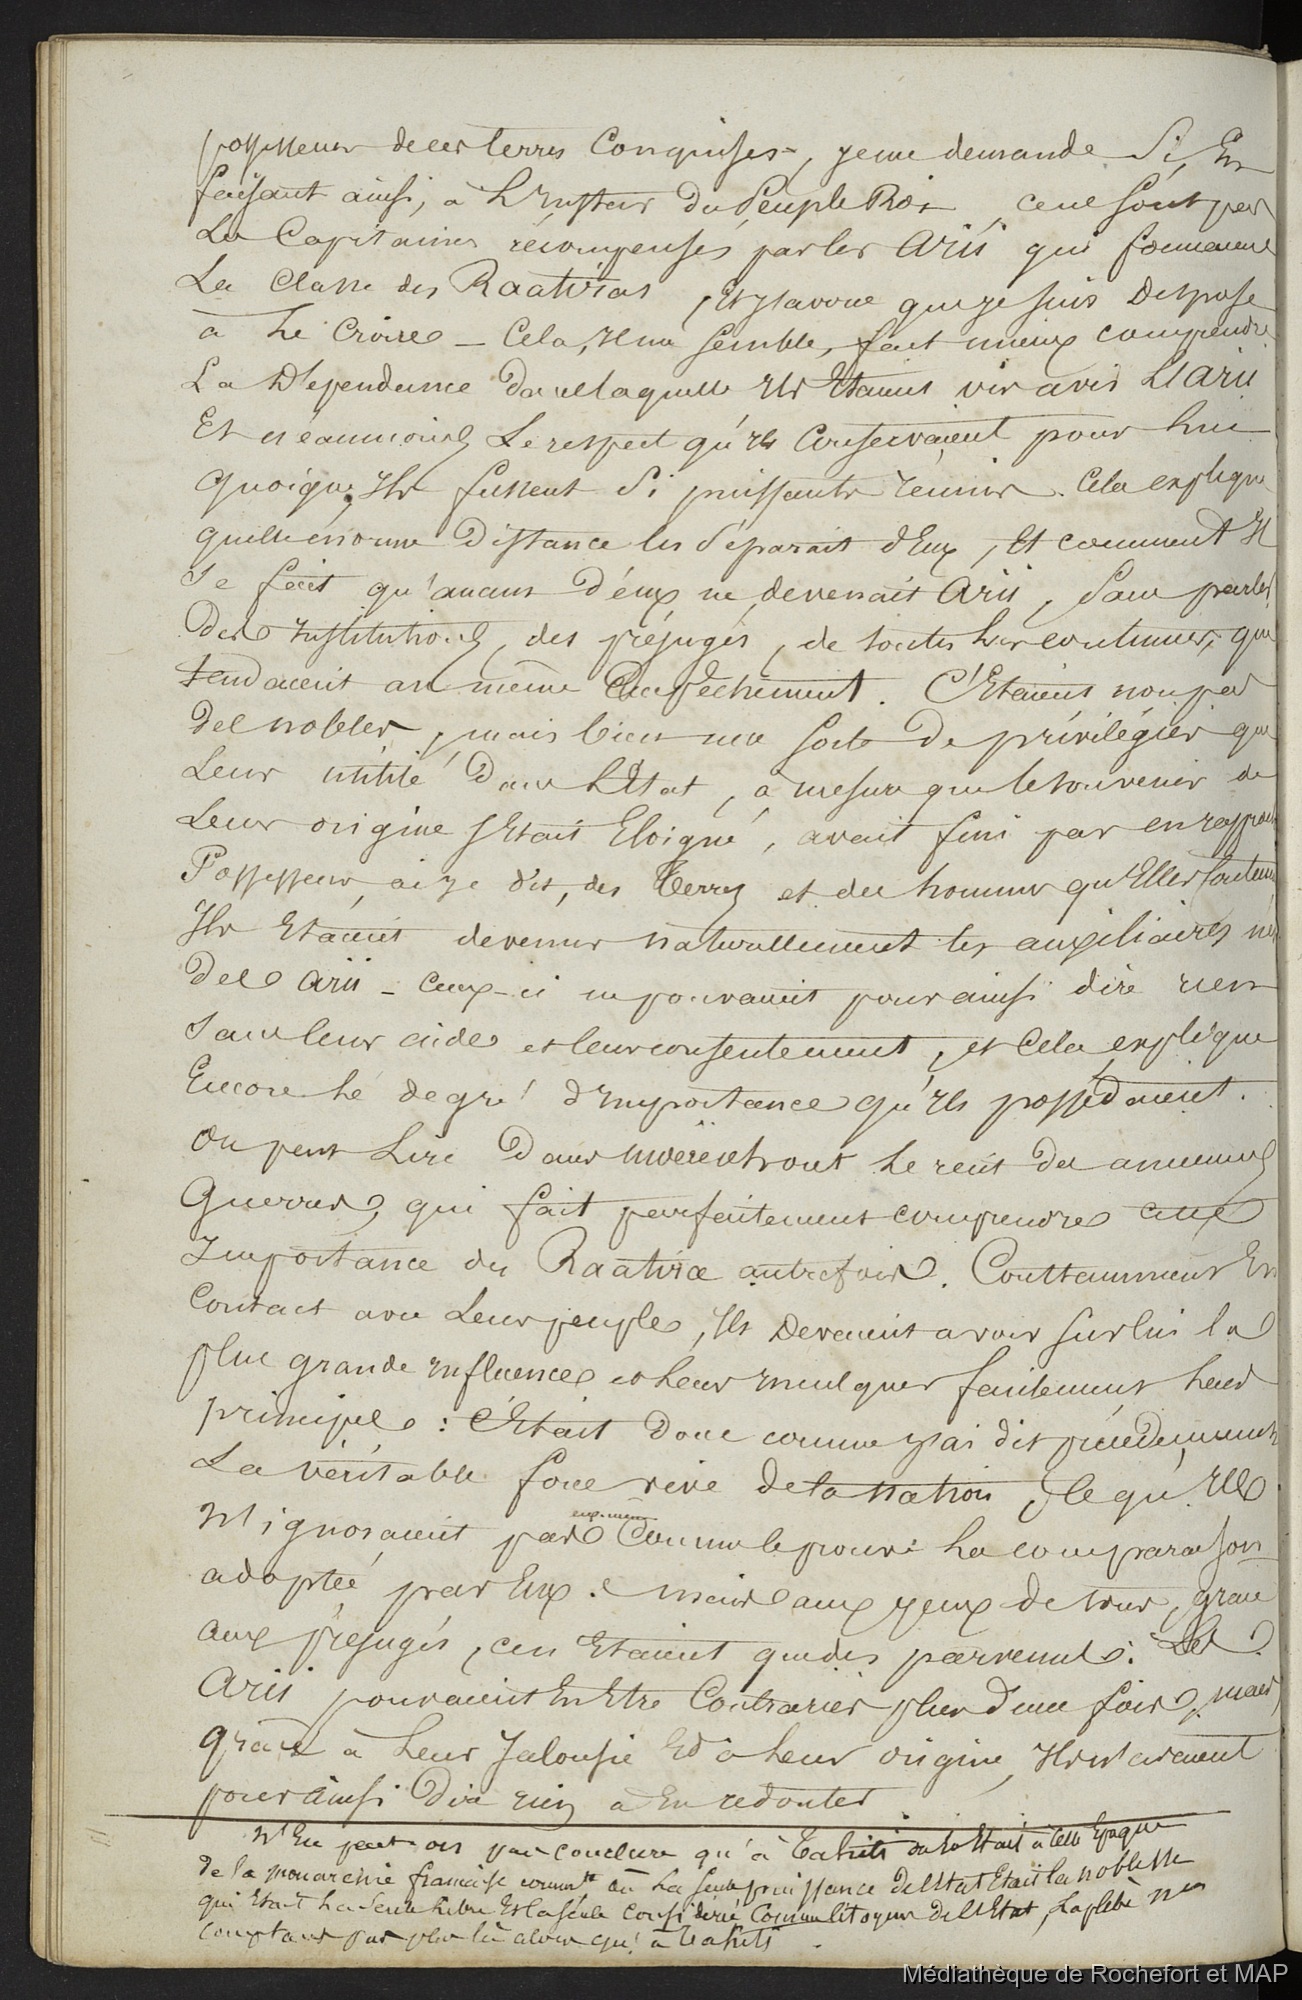 possesseur de ces terres Conquises, je me demande Si, En
faisant ainsi, à L'Instar Du Peuple Roi, ce ne sont pas
Les Capitaines récompensés par les Arii qui formaient
La Classe des Raatiras, Et J'avoue que je suis Disposé
à Le Croire — Cela, Il me semble, fait mieux comprendre
La Dépendance Dans laquelle Ils Etaient vis avis L'Arii
Et néanmoins Le respect qu'Ils Conservaient pour Lui
Quoique Ils fussent Si puissants réunis. Cela explique
quelle énorme Distance les Séparait d'Eux, Et comment Il
Se fait qu'aucun D'eux ne devenait Arii, Sans parler
Des Institutions, des préjugés, de toutes Les coutumes, qui
tendaient au même Empêchement. C'Etaient non pas
Des nobles, mais bien une Sorte De privilégiés que
Leur utilité Dans L'Etat, à mesure que le souvenir de
Leur origine S'Etait Eloigné, avait fini par en
Possesseur, ai-je dit, des Terres et des hommes qu'Elles
Ils Etaient devenus naturellement les auxiliaires nés
Des Arii — Ceux-ci ne pouvaient pour ainsi dire rien
Sans leur aide et leur consentement, et Cela explique
Encore Le degré D'Importance qu'Ils possédaient.
On peut Lire Dans Moerenhout Le récit Des anciennes
Guerres, qui fait parfaitement comprendre cette
Importance des Raatira autrefois. Constamment En
Contact avec Leur peuple, Ils Devaient avoir Sur lui la
plus grande Influence et Leur Inculquer facilement Leurs
principes : C'Etait Donc comme J'ai dit précédemment
La véritable force vive De la Nation, Ce qu'Ils
N'ignoraient pas eux-mêmes Comme le prouve La comparaison
adoptée par Eux. Mais aux yeux de tous, grâce
aux préjugés, ce n'Etaient que des parvenus. Les
Arii pouvaient En Etre Contrariés plus d'une fois, mais,
grâce à Leur Jalousie Et à Leur origine, Ils n'avaient
pour ainsi Dire rien à En redouter
N'En peut-on pas conclure qu'à Tahiti Etait à cette Epoque
de la monarchie française où La Seule puissance De l'Etat Etait la noblesse
qui Etait La Seule Libre Et la seule Considérée Comme Citoyen De l'Etat, La plèbe ne
comptant pas plus là alors qu'à Tahiti.
Médiathèque de Rochefort et MAP